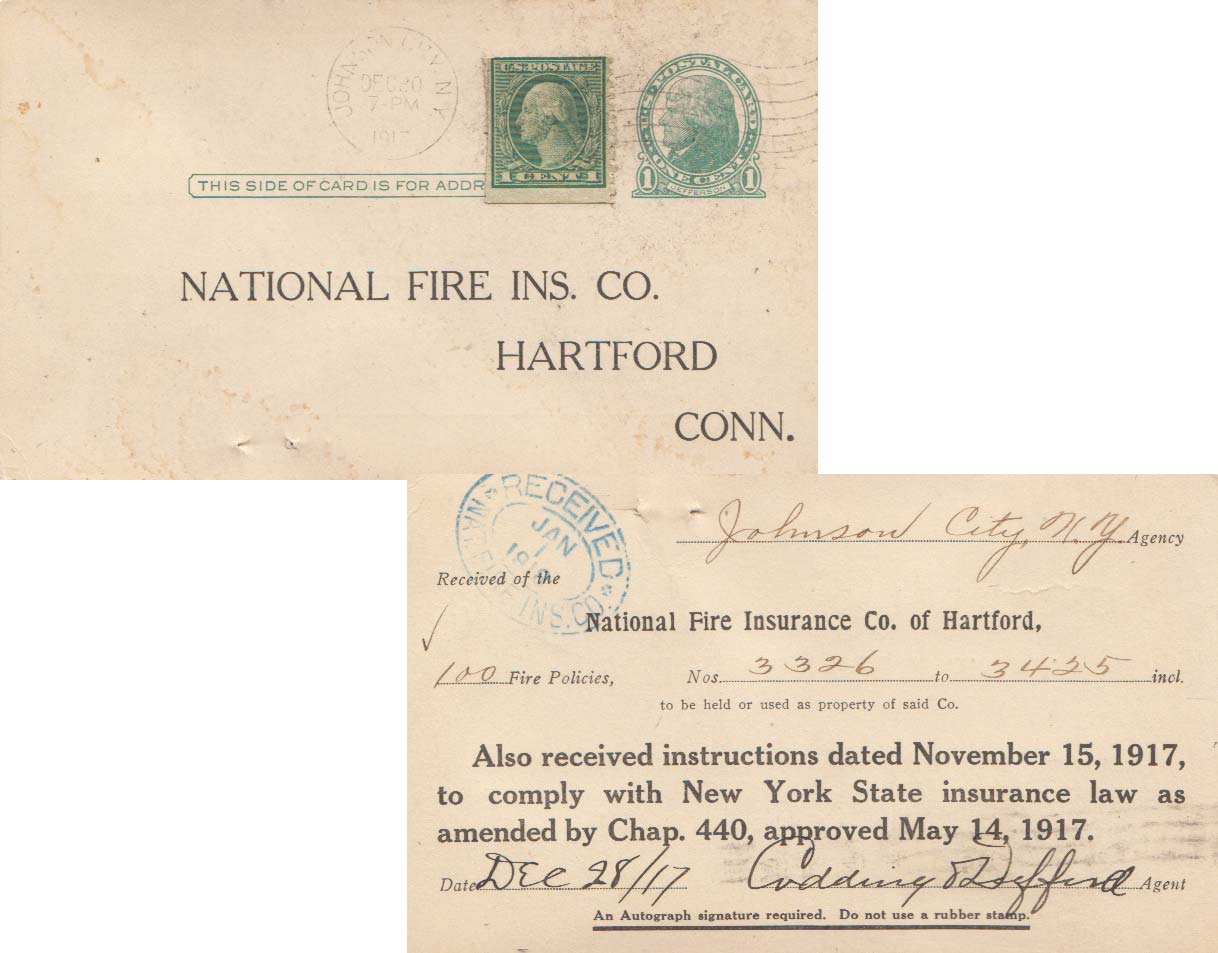 JOHNSON CITY, N.Y.
DEC 30
7-PM
1917
U.S. POSTAGE
1 CENTS 1
U.S. POSTAL CARD
ONE CENT
1 JEFFERSON 1
THIS SIDE OF CARD IS FOR ADDR
NATIONAL FIRE INS. CO.
HARTFORD
CONN.
RECEIVED
JAN
1
NAT'L FIRE INS. CO.
Johnson City, N.Y. Agency
Received of the
National Fire Insurance Co. of Hartford,
100 Fire Policies, Nos. 3326 to 3425 incl.
to be held or used as property of said Co.
Also received instructions dated November 15, 1917,
to comply with New York State insurance law as
amended by Chap. 440, approved May 14, 1917.
Date DEC 28/17 Codding Agent
An Autograph signature required. Do not use a rubber stamp.